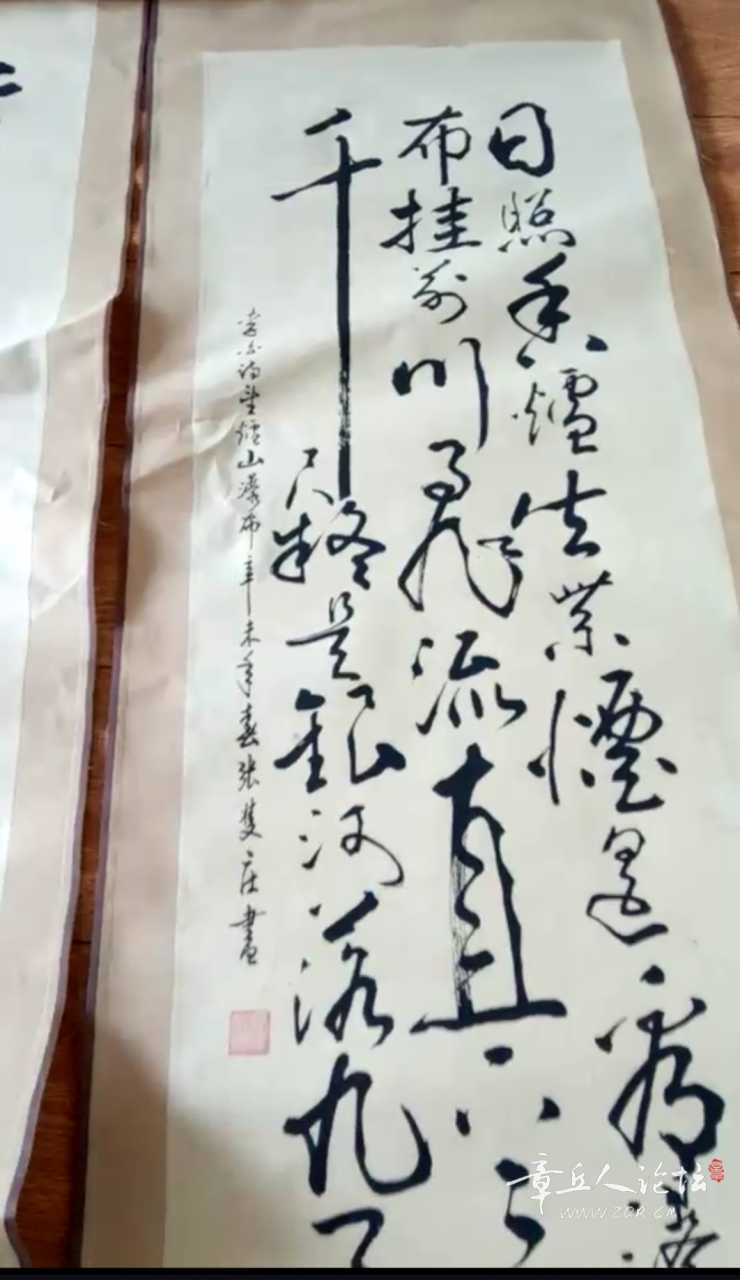 日照香爐生紫煙遥看瀑
布挂前川飛流直下三
千尺疑是銀河落九
李白诗望爐山瀑布辛未年春张書
章丘人论坛